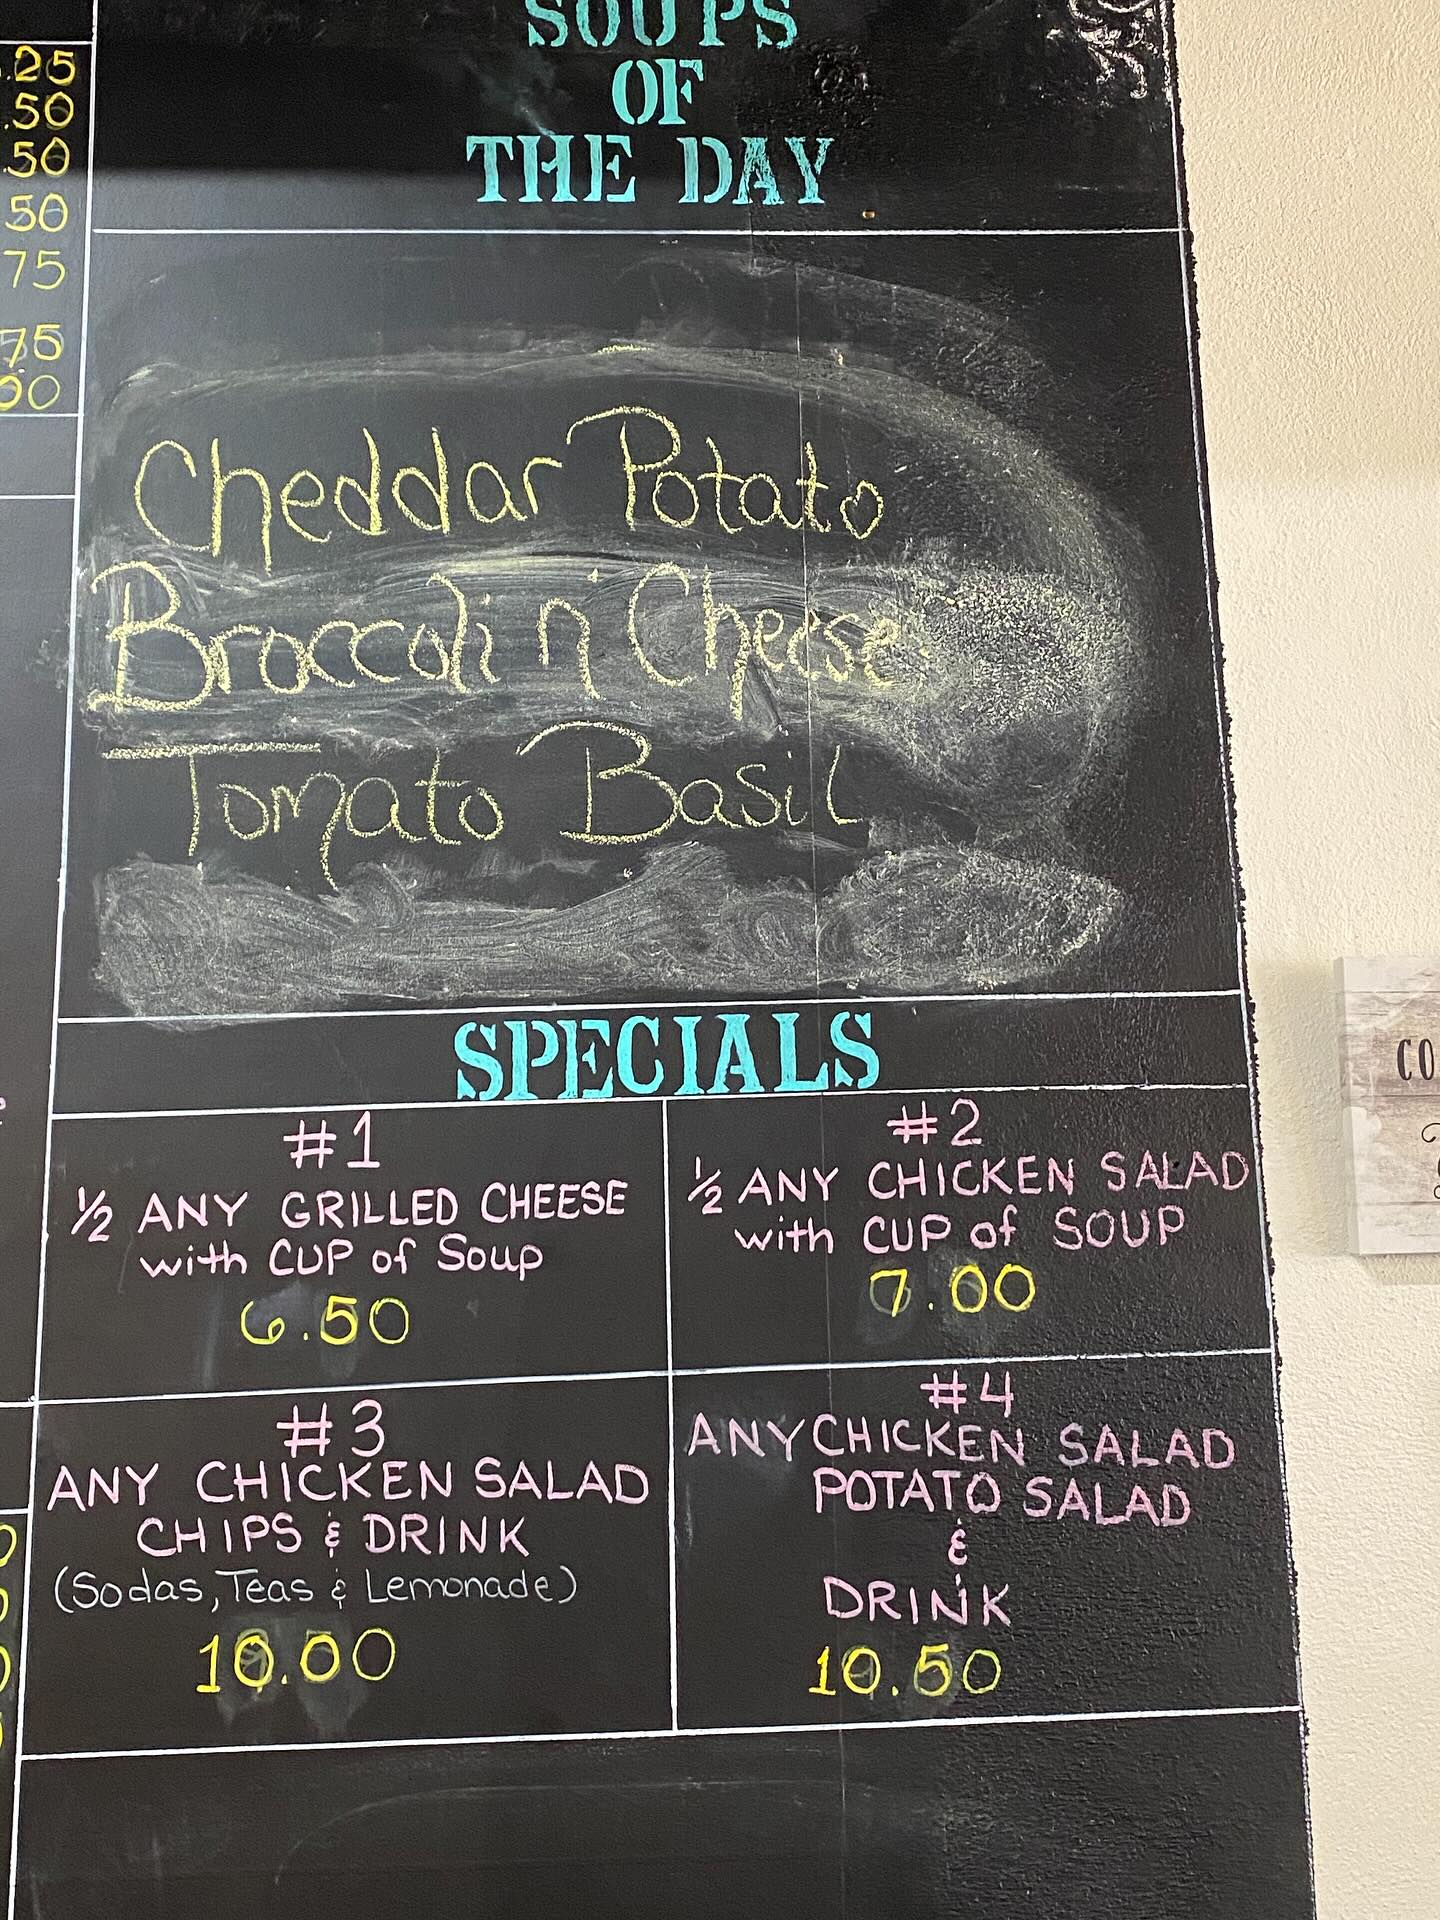 .25
.50
.50
50
75
.75
00
SOUPS
OF
THE DAY
Cheddar Potato
Broccoli n' Cheese
Tomato Basil
SPECIALS
#1
½ ANY GRILLED CHEESE
with CUP of Soup
6.50
#2
½ ANY CHICKEN SALAD
with CUP of SOUP
7.00
#3
ANY CHICKEN SALAD
CHIPS & DRINK
(Sodas, Teas & Lemonade)
10.00
#4
ANY CHICKEN SALAD
POTATO SALAD
&
DRINK
10.50
CO